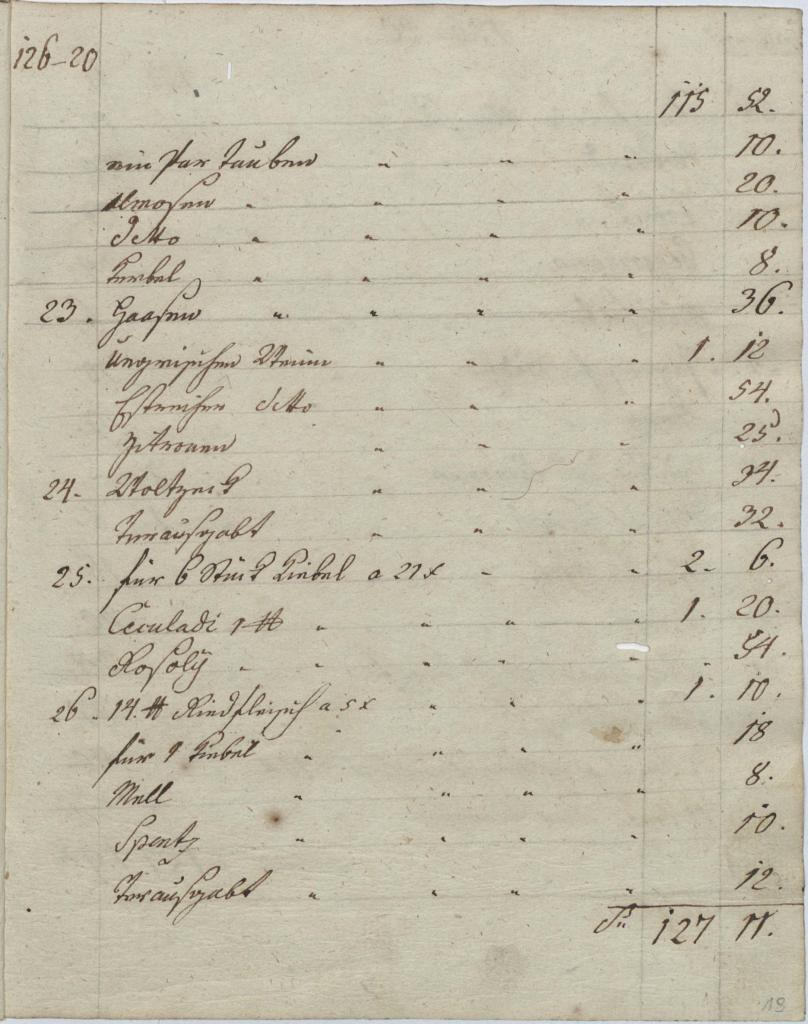 126-20
115 52.
ein Par Tauben " " " 10.
Almosen " " " " 20.
Detto " " " " 10.
" " " " 8.
23. Haasen " " " " 36.
Ungrischen Wein " " " 1. 12
Estreicher Detto " " " 54.
Zitronen " " " 25.
24. " " " 34.
Verausgabt " " " 32.
25. für 6 Stück Kiebel a 21 x " " 2. 6.
Cculadi 1 ℔ " " " " 1. 20.
Rosoly " " " " " 54.
26. 14. ℔ Rindfleisch a 5 x " " " 1. 10.
für 1 Kiebel " " " " 18
Mell " " " " 8.
" " " " 10.
Verausgabt " " " " 12.
127 11.
18